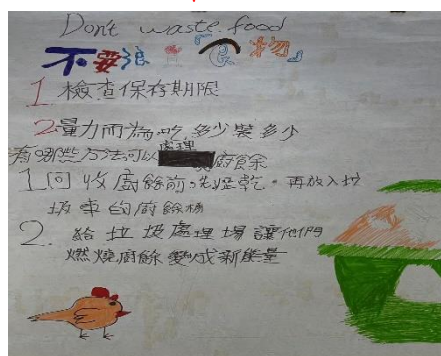 Don't waste food
不要浪費食物
1. 檢查保存期限
2. 量力而為吃多少裝多少
有哪些方法可以處理廚餘
1. 回收廚餘前,先瀝乾。再放入垃
圾車的廚餘桶
2. 給垃圾處理場讓他們
燃燒廚餘變成新能量